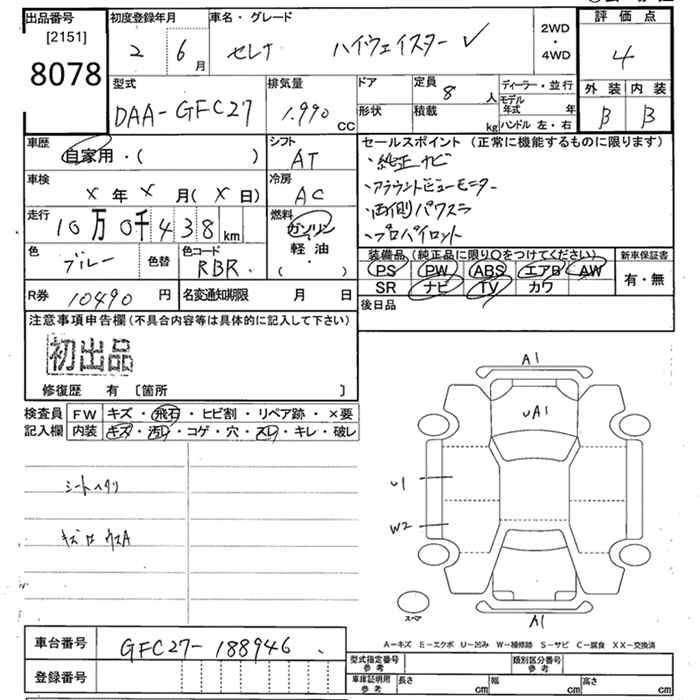 出品番号
[2151]
8078
初度登録年月
2 6月
車名・グレード
セレナ ハイウェイスター ✓
2WD
・
4WD
評価点
4
外装 内装
B B
型式
DAA-GFC27
排気量
1.990 CC
ドア
形状
定員 8 人
積載 kg
ディーラー・並行
モデル年式 年
ハンドル 左・右
車歴
自家用・( )
シフト
AT
車検
X年X月(X日)
冷房
AC
走行
10万0千438km
燃料
ガソリン
軽油
・( )
色
ブルー
色替
色コード
RBR.
R券 10490 円
名変通知期限 月 日
セールスポイント(正常に機能するものに限ります)
・純正ナビ
・アラウンドビューモニター
・両側パワスラ
・プロパイロット
装備品(純正品に限り○をつけてください)
PS PW ABS エアB AW
SR ナビ TV カワ
新車保証書
有・無
後日品
注意事項申告欄(不具合内容等は具体的に記入して下さい)
初出品
修復歴 有 〔箇所 〕
検査員記入欄
FW キズ・飛石・ヒビ割・リペア跡・×要
内装 キズ・汚レ・コゲ・穴・スレ・キレ・破レ
シートヘタリ
A1
uA1
u1
W2
A1
スペア
A-キズ E-エクボ U-凹み W-補修跡 S-サビ C-腐食 XX-交換済
車台番号 GFC27-188946
登録番号
型式指定番号
参考
類別区分番号
参考
車庫証明用
参考
長さ cm
幅 cm
高さ cm